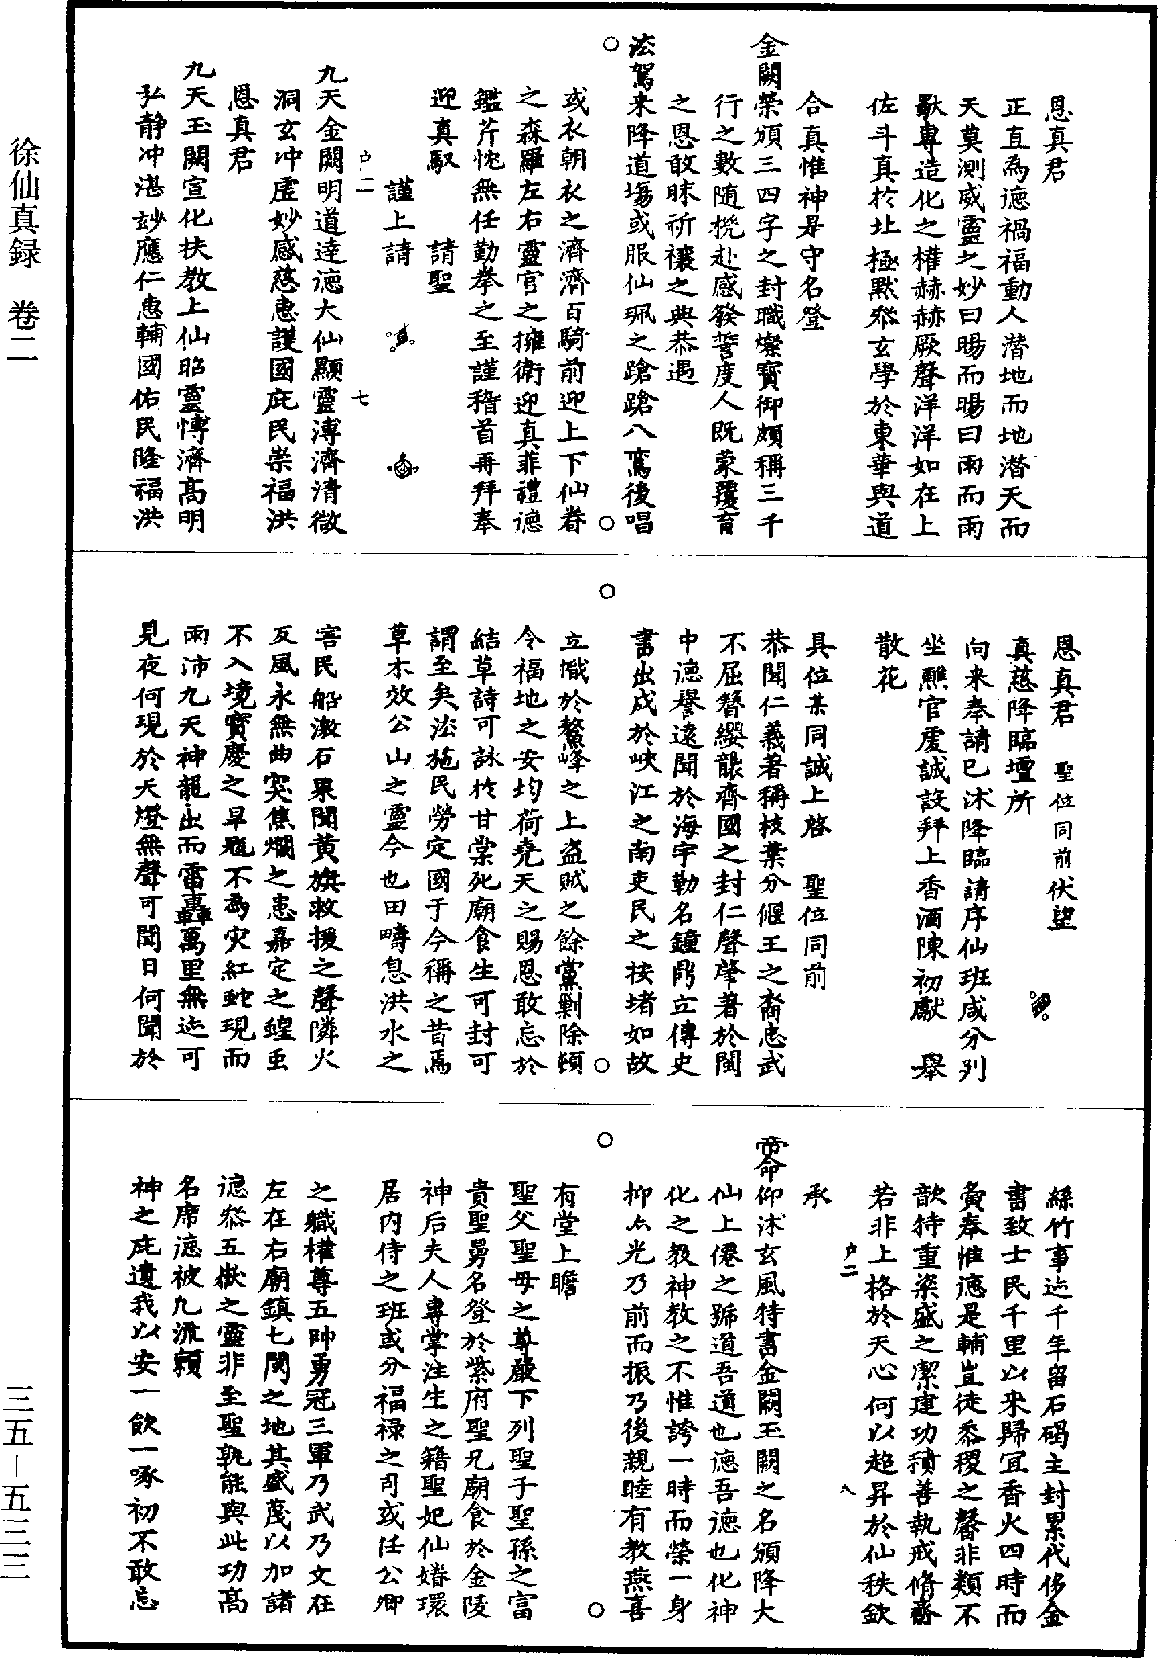 徐仙真録　卷二
三五—五三三
恩真君
正直為德禍福動人潛地而地潛天而
天莫測威靈之妙曰暘而暘曰雨而雨
獸專造化之權赫赫厥聲洋洋如在上
佐斗真於北極默叅玄學於東華與道
合真惟神是守名登
金闕榮頒三四字之封職燦寶御頗稱三千
行之數隨機赴感發誓度人既蒙覆育
之恩敢昧祈禳之典恭遇
法駕来降道場或服仙珮之蹌蹌八鸞後唱
或衣朝衣之濟濟百騎前迎上下仙眷
之森羅左右靈官之擁衛迎真菲禮德
鑑芹忱無任勤拳之至謹稽首再拜奉
迎真馭　請聖
謹上請
户二　七
九天金闕明道達德大仙顯靈溥濟清微
洞玄冲虛妙感慈惠護國庇民崇福洪
恩真君
九天玉闕宣化扶教上仙昭靈博濟高明
弘靜冲湛妙應仁惠輔國佑民隆福洪
恩真君　聖位同前伏望
真慈降臨壇所
向来奉請已沐降臨請序仙班咸分列
坐醮官虔誠設拜上香酒陳初獻　舉
散花
具位某同誠上啓　聖位同前
恭聞仁義著稱枝葉分偃王之裔忠武
不屈簪纓襲齊國之封仁聲肇著於閩
中德譽遠聞於海宇勒名鐘鼎立傳史
書出戍於峽江之南吏民之按堵如故
立幟於鰲峰之上盜賊之餘黨剿除頓
令福地之安均荷堯天之賜恩敢忘於
結草詩可詠於甘棠死廟食生可封可
謂至矣法施民勞定國于今稱之昔焉
草木效公山之靈今也田疇息洪水之
害民船激石果聞黃旗救援之聲隣火
反風永無曲突焦爛之患嘉定之蝗虫
不入境寶慶之旱魃不為灾紅蛇現而
雨沛九天神龍出而雷轟萬里無迹可
見夜何現於天燈無聲可聞日何聞於
絲竹事迹千年留石碣主封累代侈金
書致士民千里以来歸宜香火四時而
賽奉惟德是輔豈徒黍稷之馨非類不
歆特重粢盛之潔建功積善執戒脩齋
若非上格於天心何以超昇於仙秩欽
户二　八
承
帝命仰沐玄風特書金闕玉闕之名頒降大
仙上僊之號道吾道也德吾德也化神
化之教神教之不惟誇一時而榮一身
抑亦光乃前而振乃後親睦有教燕喜
有堂上瞻
聖父聖母之尊嚴下列聖子聖孫之富
貴聖舅名登於紫府聖兄廟食於金陵
神后夫人專掌注生之籍聖妃仙婚環
居内侍之班或分福祿之司或任公卿
之職權尊五帥勇冠三軍乃武乃文在
左在右廟鎮七閩之地其盛蔑以加諸
德叅五嶽之靈非至聖孰能與此功高
名席德被九流賴
神之庇遺我以安一飲一啄初不敢忘